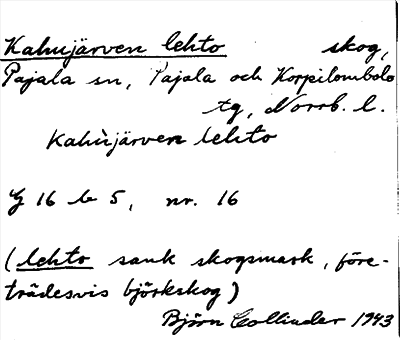 Kahujärven lehto skog,
Pajala sn, Pajala och Korpilombolo
tg, Norrb. l.
Kahùjärven lehto
G 16 b 5, nr. 16
(lehto sank skogsmark, före-
trädesvis björkskog)
Björn Collinder 1943